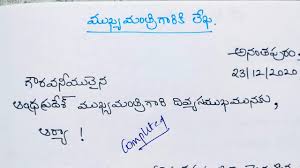 ముఖ్యమంత్రిగారికి లేఖ.
అనంతపురం,
23/12/2020
గౌరవనీయులైన
ఆంధ్రప్రదేశ్ ముఖ్యమంత్రిగారి దివ్యసముఖమునకు,
ఆర్యా !
Completed